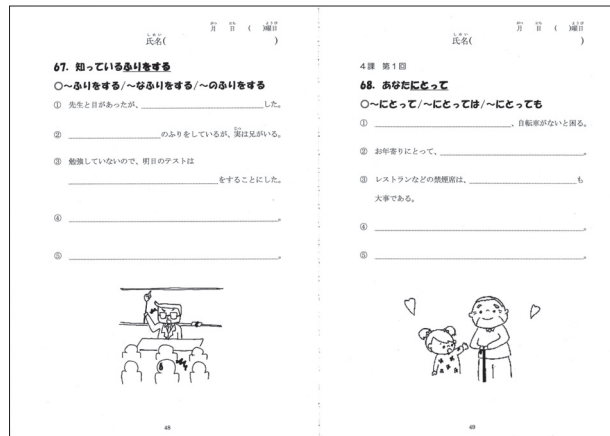 月 日 ( )曜日
氏名( )
67. 知っているふりをする
○~ふりをする/~なふりをする/~のふりをする
① 先生と目があったが、______した。
② ______のふりをしているが、実は兄がいる。
③ 勉強していないので、明日のテストは
______をすることにした。
④ ______。
⑤ ______。
48
月 日 ( )曜日
氏名( )
4課 第1回
68. あなたにとって
○~にとって/~にとっては/~にとっても
① ______、自転車がないと困る。
② お年寄りにとって、______。
③ レストランなどの禁煙席は、______も
大事である。
④ ______。
⑤ ______。
49